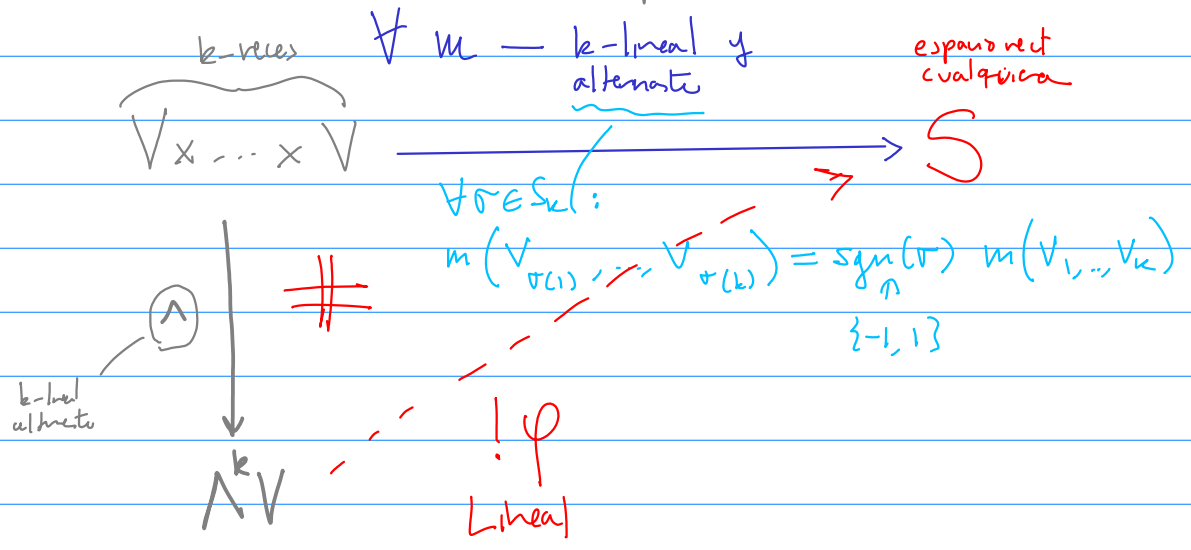 k-veces
∀ m — k-lineal y
alternante
espacio vect
cualquiera
V x ... x V
S
∀σ∈S_k :
m(V_σ(1), ..., V_σ(k)) = sgn(σ) m(V_1, .., V_k)
{-1, 1}
∧
k-lineal
alternante
! φ
Lineal
Λ^k V